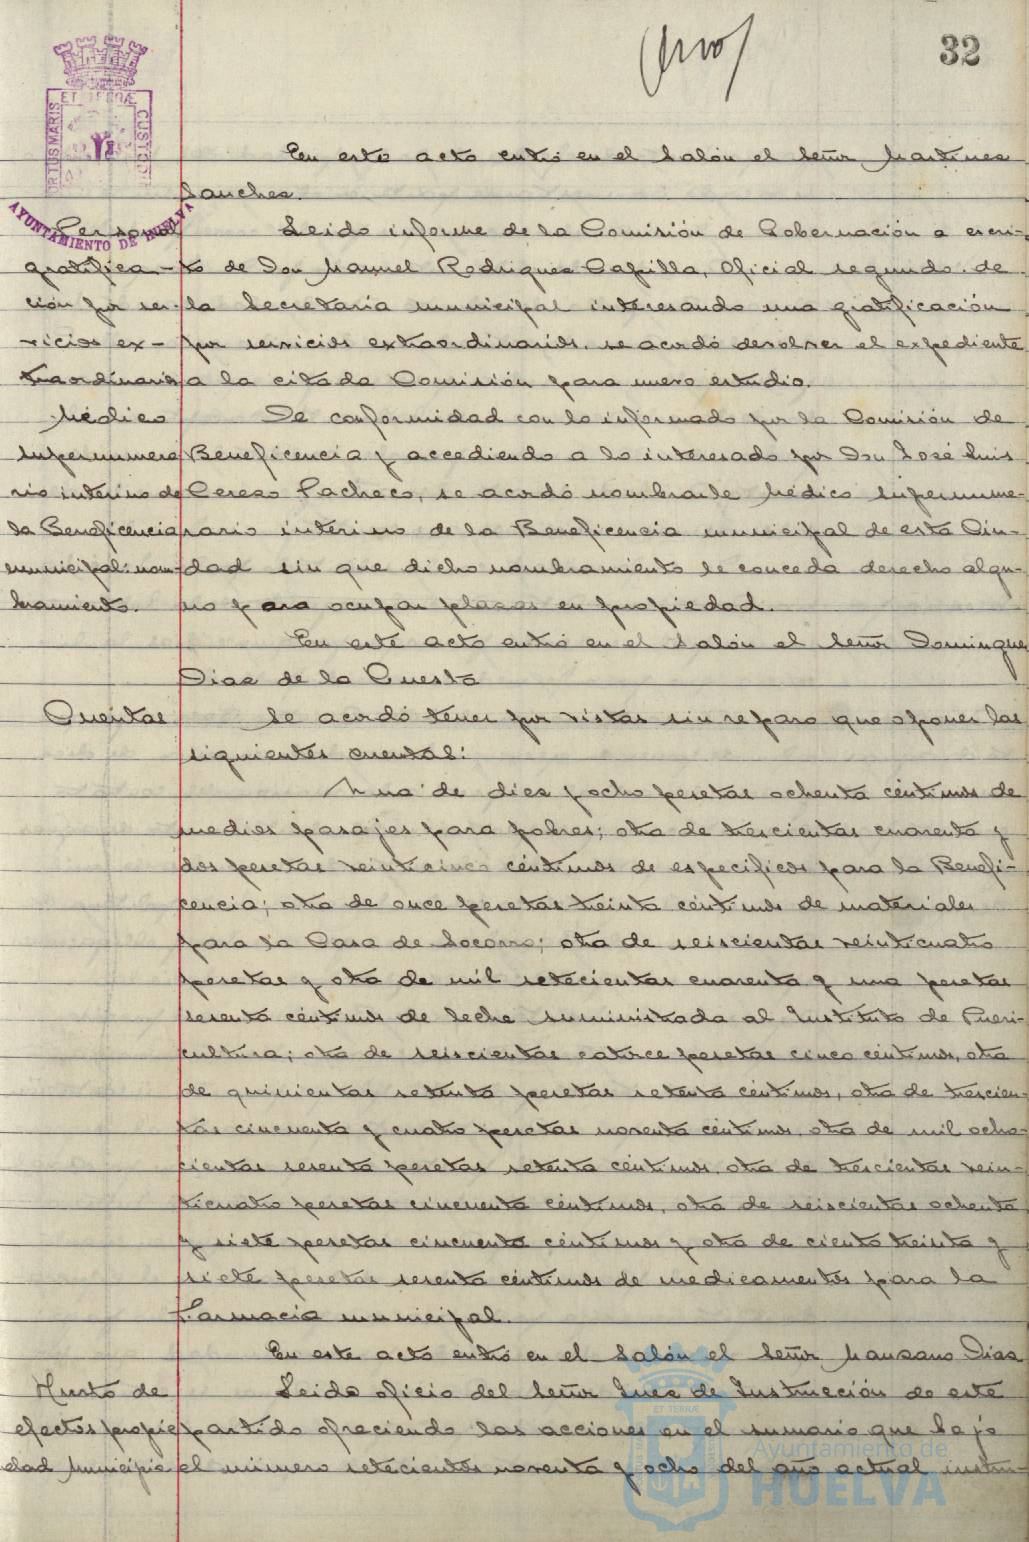 32
ET TERRÆ
PORTUS MARIS
CUSTODIA
AYUNTAMIENTO DE HUELVA
En este acto entró en el Salón el Señor Martinez
Sanchez.
Personal
gratifica-
ción por ser-
vicios ex-
traordinarios
Leido informe de la Comisión de Gobernación a escri-
to de Don Manuel Rodriguez Capilla, Oficial segundo de
la Secretaría municipal interesando una gratificación
por servicios extraordinarios, se acordó devolver el expediente
a la citada Comisión para nuevo estudio.
Médico
supernumera
rio interino de
la Beneficencia
municipal: nom-
bramiento.
De conformidad con lo informado por la Comisión de
Beneficencia y accediendo a lo interesado por Don José Luis
Cerezo Pacheco, se acordó nombrarle Médico supernume-
rario interino de la Beneficencia municipal de esta Ciu-
dad sin que dicho nombramiento le conceda derecho algu-
no para ocupar plazas en propiedad.
En este acto entró en el Salón el Señor Dominguez
Diaz de la Cuesta
Cuentas
Se acordó tener por vistas sin reparo que oponer las
siguientes cuentas:
Una de diez y ocho pesetas ochenta céntimos de
medios pasajes para pobres; otra de trescientas cuarenta y
dos pesetas veinticinco céntimos de específicos para la Benefi-
cencia; otra de once pesetas treinta céntimos de materiales
para la Casa de Socorro; otra de seiscientas veinticuatro
pesetas y otra de mil setecientas cuarenta y una pesetas
sesenta céntimos de leche suministrada al Instituto de Pueri-
cultura; otra de seiscientas catorce pesetas cinco céntimos, otra
de quinientas setenta pesetas setenta céntimos, otra de trescien-
tas cincuenta y cuatro pesetas noventa céntimos, otra de mil ocho-
cientas sesenta pesetas setenta céntimos, otra de trescientas vein-
ticuatro pesetas cincuenta céntimos, otra de seiscientas ochenta
y siete pesetas cincuenta céntimos y otra de ciento treinta y
siete pesetas sesenta céntimos de medicamentos para la
Farmacia municipal.
En este acto entró en el Salón el Señor Manzano Diaz
Hurto de
efectos propie
dad Municipio
Leido oficio del Señor Juez de Instrucción de este
partido ofreciendo las acciones en el sumario que bajo
el número setecientos noventa y ocho del año actual instru-
Ayuntamiento de
HUELVA